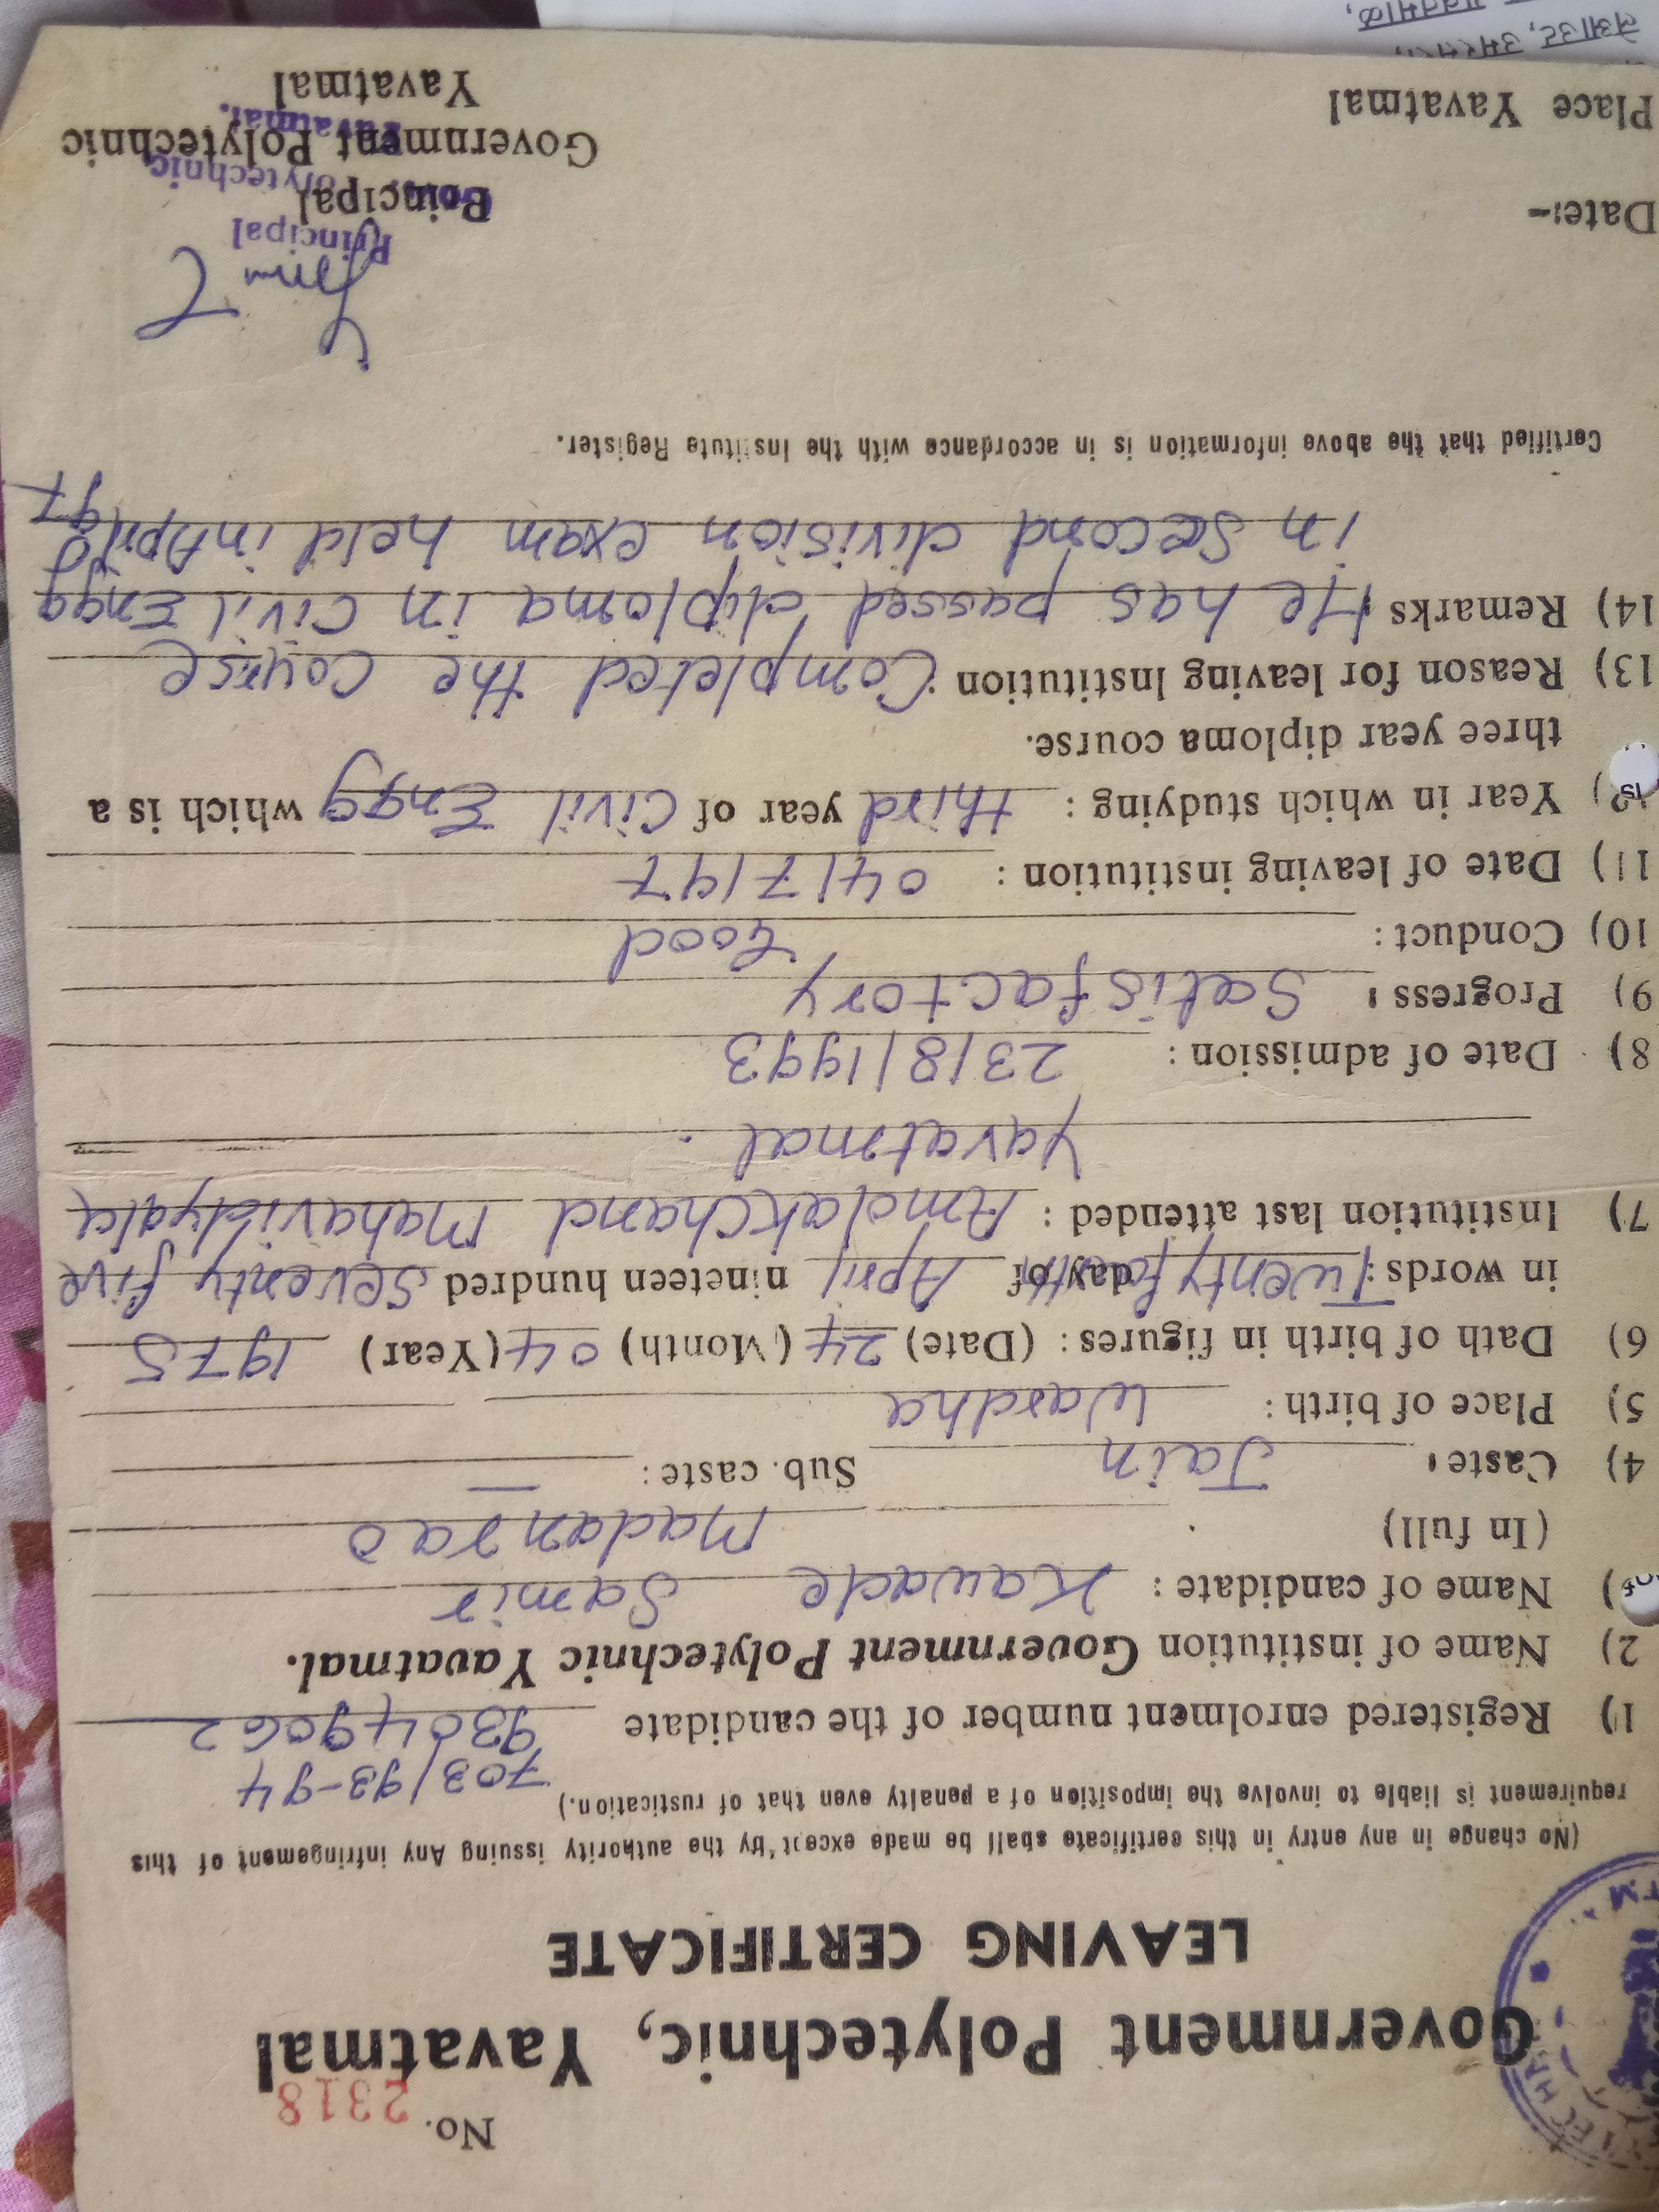 No. 2318
Government Polytechnic, Yavatmal
LEAVING CERTIFICATE
(No change in any entry in this certificate shall be made except by the authority issuing Any infringement of this
requirement is liable to involve the imposition of a penalty even that of rustication.)
703/93-94
1) Registered enrolment number of the candidate 93049062
2) Name of institution Government Polytechnic Yavatmal.
) Name of candidate : Kawade Samir
(In full) Madanrao
4) Caste : Jain Sub. caste : —
5) Place of birth : Wardha
6) Dath of birth in figures : (Date) 24 (Month) 04 (Year) 1975
in words : Twentyfourth day of April nineteen hundred seventy five
7) Institution last attended : Amolakchand Mahavidyala
Yavatmal.
8) Date of admission : 23/8/1993
9) Progress : Satisfactory
10) Conduct : Good
11) Date of leaving institution : 04/7/97
12) Year in which studying : third year of Civil Engg which is a
three year diploma course.
13) Reason for leaving Institution : Completed the course
14) Remarks : He has passed diploma in Civil Engg
in second division exam held in April 97
Certified that the above information is in accordance with the Institute Register.
Principal
Principal
Polytechnic
Date:-
Government Polytechnic
Yavatmal.
Place Yavatmal
Yavatmal